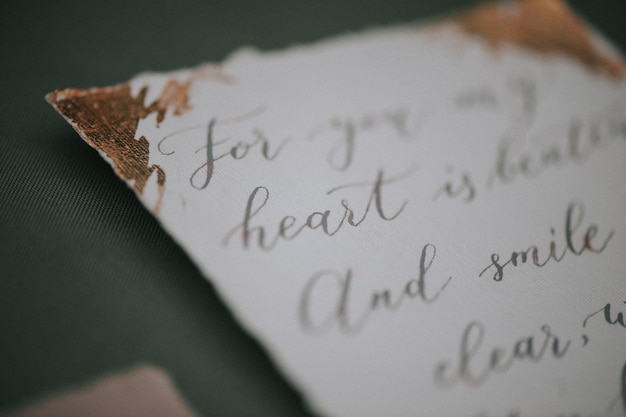 For you my
heart is beaten
And smile
clear,